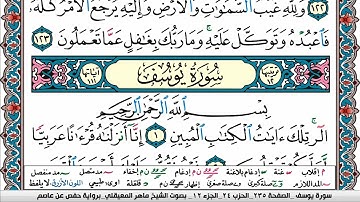 ١٢٢ وَلِلَّهِ غَيْبُ السَّمَٰوَٰتِ وَالْأَرْضِ وَإِلَيْهِ يُرْجَعُ الْأَمْرُ كُلُّهُ
فَاعْبُدْهُ وَتَوَكَّلْ عَلَيْهِ وَمَا رَبُّكَ بِغَٰفِلٍ عَمَّا تَعْمَلُونَ ١٢٣
سُورَةُ يُوسُفَ
آيَاتُهَا ١١١
بِسْمِ اللَّهِ الرَّحْمَٰنِ الرَّحِيمِ
الٓر تِلْكَ ءَايَٰتُ الْكِتَٰبِ الْمُبِينِ ١ إِنَّا أَنزَلْنَٰهُ قُرْءَٰنًا عَرَبِيًّا
سورة يوسف . الصفحة ٢٣٥ . الحزب ٢٤ . الجزء ١٢ . بصوت الشيخ ماهر المعيقلي . برواية حفص عن عاصم